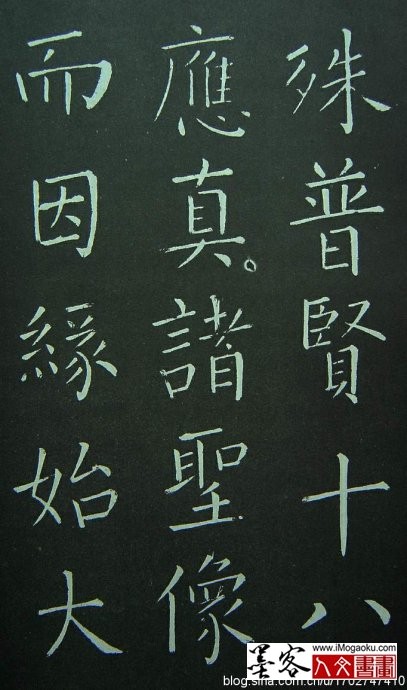 殊普賢十八
應真諸聖像
而因緣始大
墨客
www.iMogaoku.com
人文書畫
blog.sina.com.cn/u/1702747410